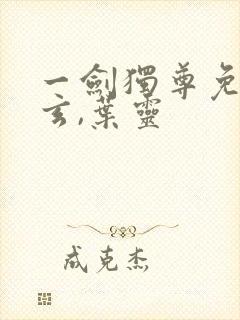 一劍獨尊免
玄,葉靈
成克杰